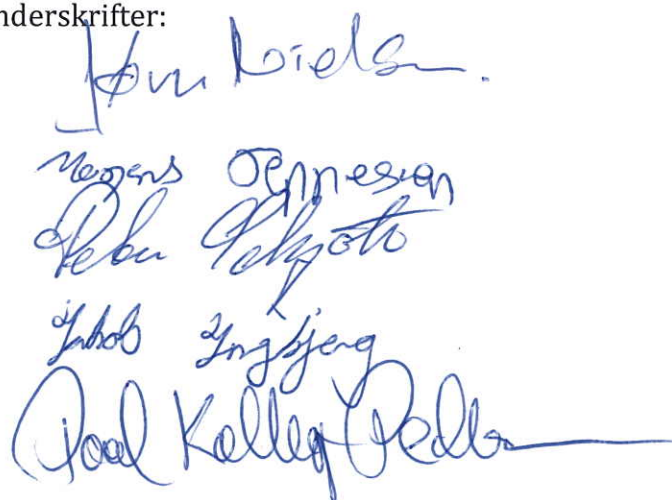 nderskrifter:
Jørn Nielsen.
Mogens Tønnesen
Peter
Jakob Yngbjerg
Poul Kelley Pedersen